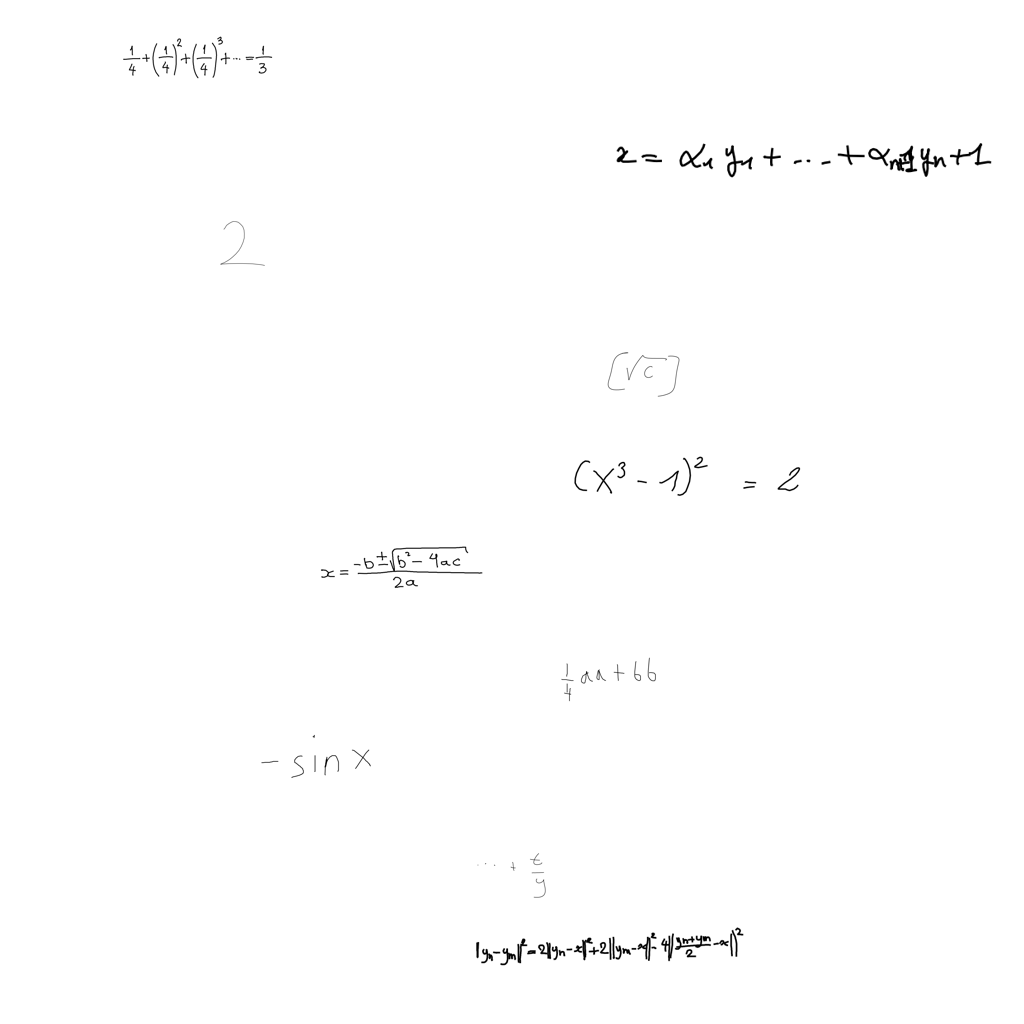 1/4+(1/4)²+(1/4)³+...=1/3
x = α₁ y₁ + ... + αₙ₊₁ yₙ+1
2
[√c]
(x³ - 1)² = 2
x = (-b ± √(b² - 4ac))/(2a)
1/4 aa + bb
- sin x
... + t/y
|yₙ-yₘ|² = 2|yₙ-x|² + 2||yₘ-x||² - 4||(yₙ+yₘ)/2 - x||²